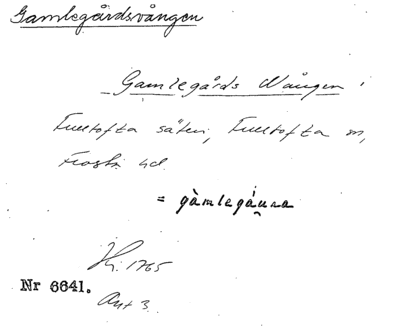 Gamlegårdsvången
Gamlegårds Wången
Fultofta säteri, Fultofta sn,
Frosta hd.
= gàmlegá͔ɹna
1765
Nr 6641.
Akt 3.